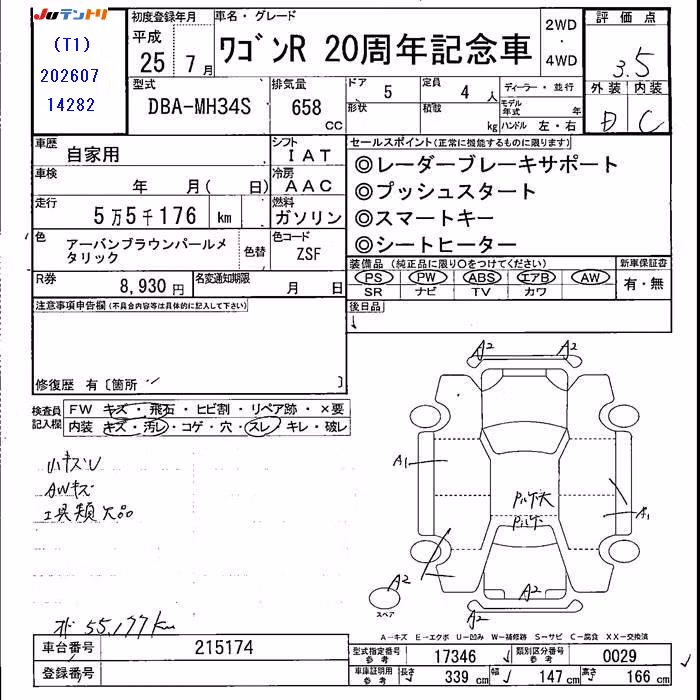 JUテントリ
(T1)
202607
14282
初度登録年月
平成
25 7月
車名・グレード
ワゴンR 20周年記念車
2WD
・
4WD
評価点
3.5
外装 内装
D C
型式
DBA-MH34S
排気量
658
CC
ドア
5
定員
4 人
形状
積載
kg
ディーラー・並行
モデル年式 年
ハンドル 左・右
車歴
自家用
シフト
IAT
車検
年 月( 日)
冷房
AAC
走行
5万5千176 km
燃料
ガソリン
色
アーバンブラウンパールメタリック
色替
色コード
ZSF
R券
8,930円
名変通知期限
月 日
セールスポイント(正常に機能するものに限ります)
◎レーダーブレーキサポート
◎プッシュスタート
◎スマートキー
◎シートヒーター
装備品(純正品に限り○をつけてください)
PS PW ABS エアB AW
SR ナビ TV カワ
新車保証書
有・無
後日品
注意事項申告欄(不具合内容等は具体的に記入して下さい)
修復歴 有〔箇所 〕
検査員記入欄
FW キズ・飛石・ヒビ割・リペア跡・×要
内装 キズ・汚レ・コゲ・穴・スレ・キレ・破レ
小キズU
AWキズ
工具類欠品
オド 55,177km
A2 A2
A1
A1
A2
スペア
A2
A2
A-キズ E-エクボ U-凹み W-補修跡 S-サビ C-腐食 XX-交換済
車台番号
215174
登録番号
型式指定番号
参考
17346
類別区分番号
参考
0029
車庫証明用
参考
長さ
339 cm
幅
147 cm
高さ
166 cm